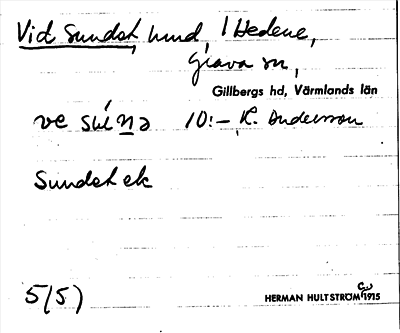 Vid Sundet, hmd, I Hedene,
Glava sn,
Gillbergs hd, Värmlands län
ve súnə 10:– K. Andersson
Sundet ek
5(5)
HERMAN HULTSTRÖM 1915